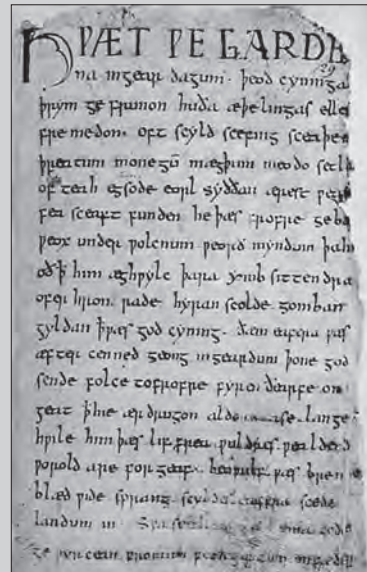 HǷÆT ǷE GARDE
29
na in gear dagum · þeod cyninga
þrym ge frunon huða æþelingas elle
fre medon · oft scyld scefing sceaþe
þreatum monegū mægþum meodo setl
of teah egsode eorl syððan ærest ƿear
fea sceaft funden he þæs frofre geba
ƿeox under ƿolcnum ƿeorð myndum þah
oð ꝥ him æghƿylc þara ymb sittendra
ofer hron rade hyran scolde gomban
gyldan ꝥ ƿæs god cyning · ðæm eafera ƿæs
æfter cenned geong in geardum þone god
sende folce tofrofre fyren ðearfe on
geat ꝥ hie ær drugon aldor ase · lange
hƿile him þæs lif frea ƿuldres ƿealdend
ƿorold are for geaf · beoƿulf ƿæs breme
blæd ƿide sprang scyldes eafera scede
landum in · Sƿa guma gode
ge ƿyrcean fromum feoh giftum